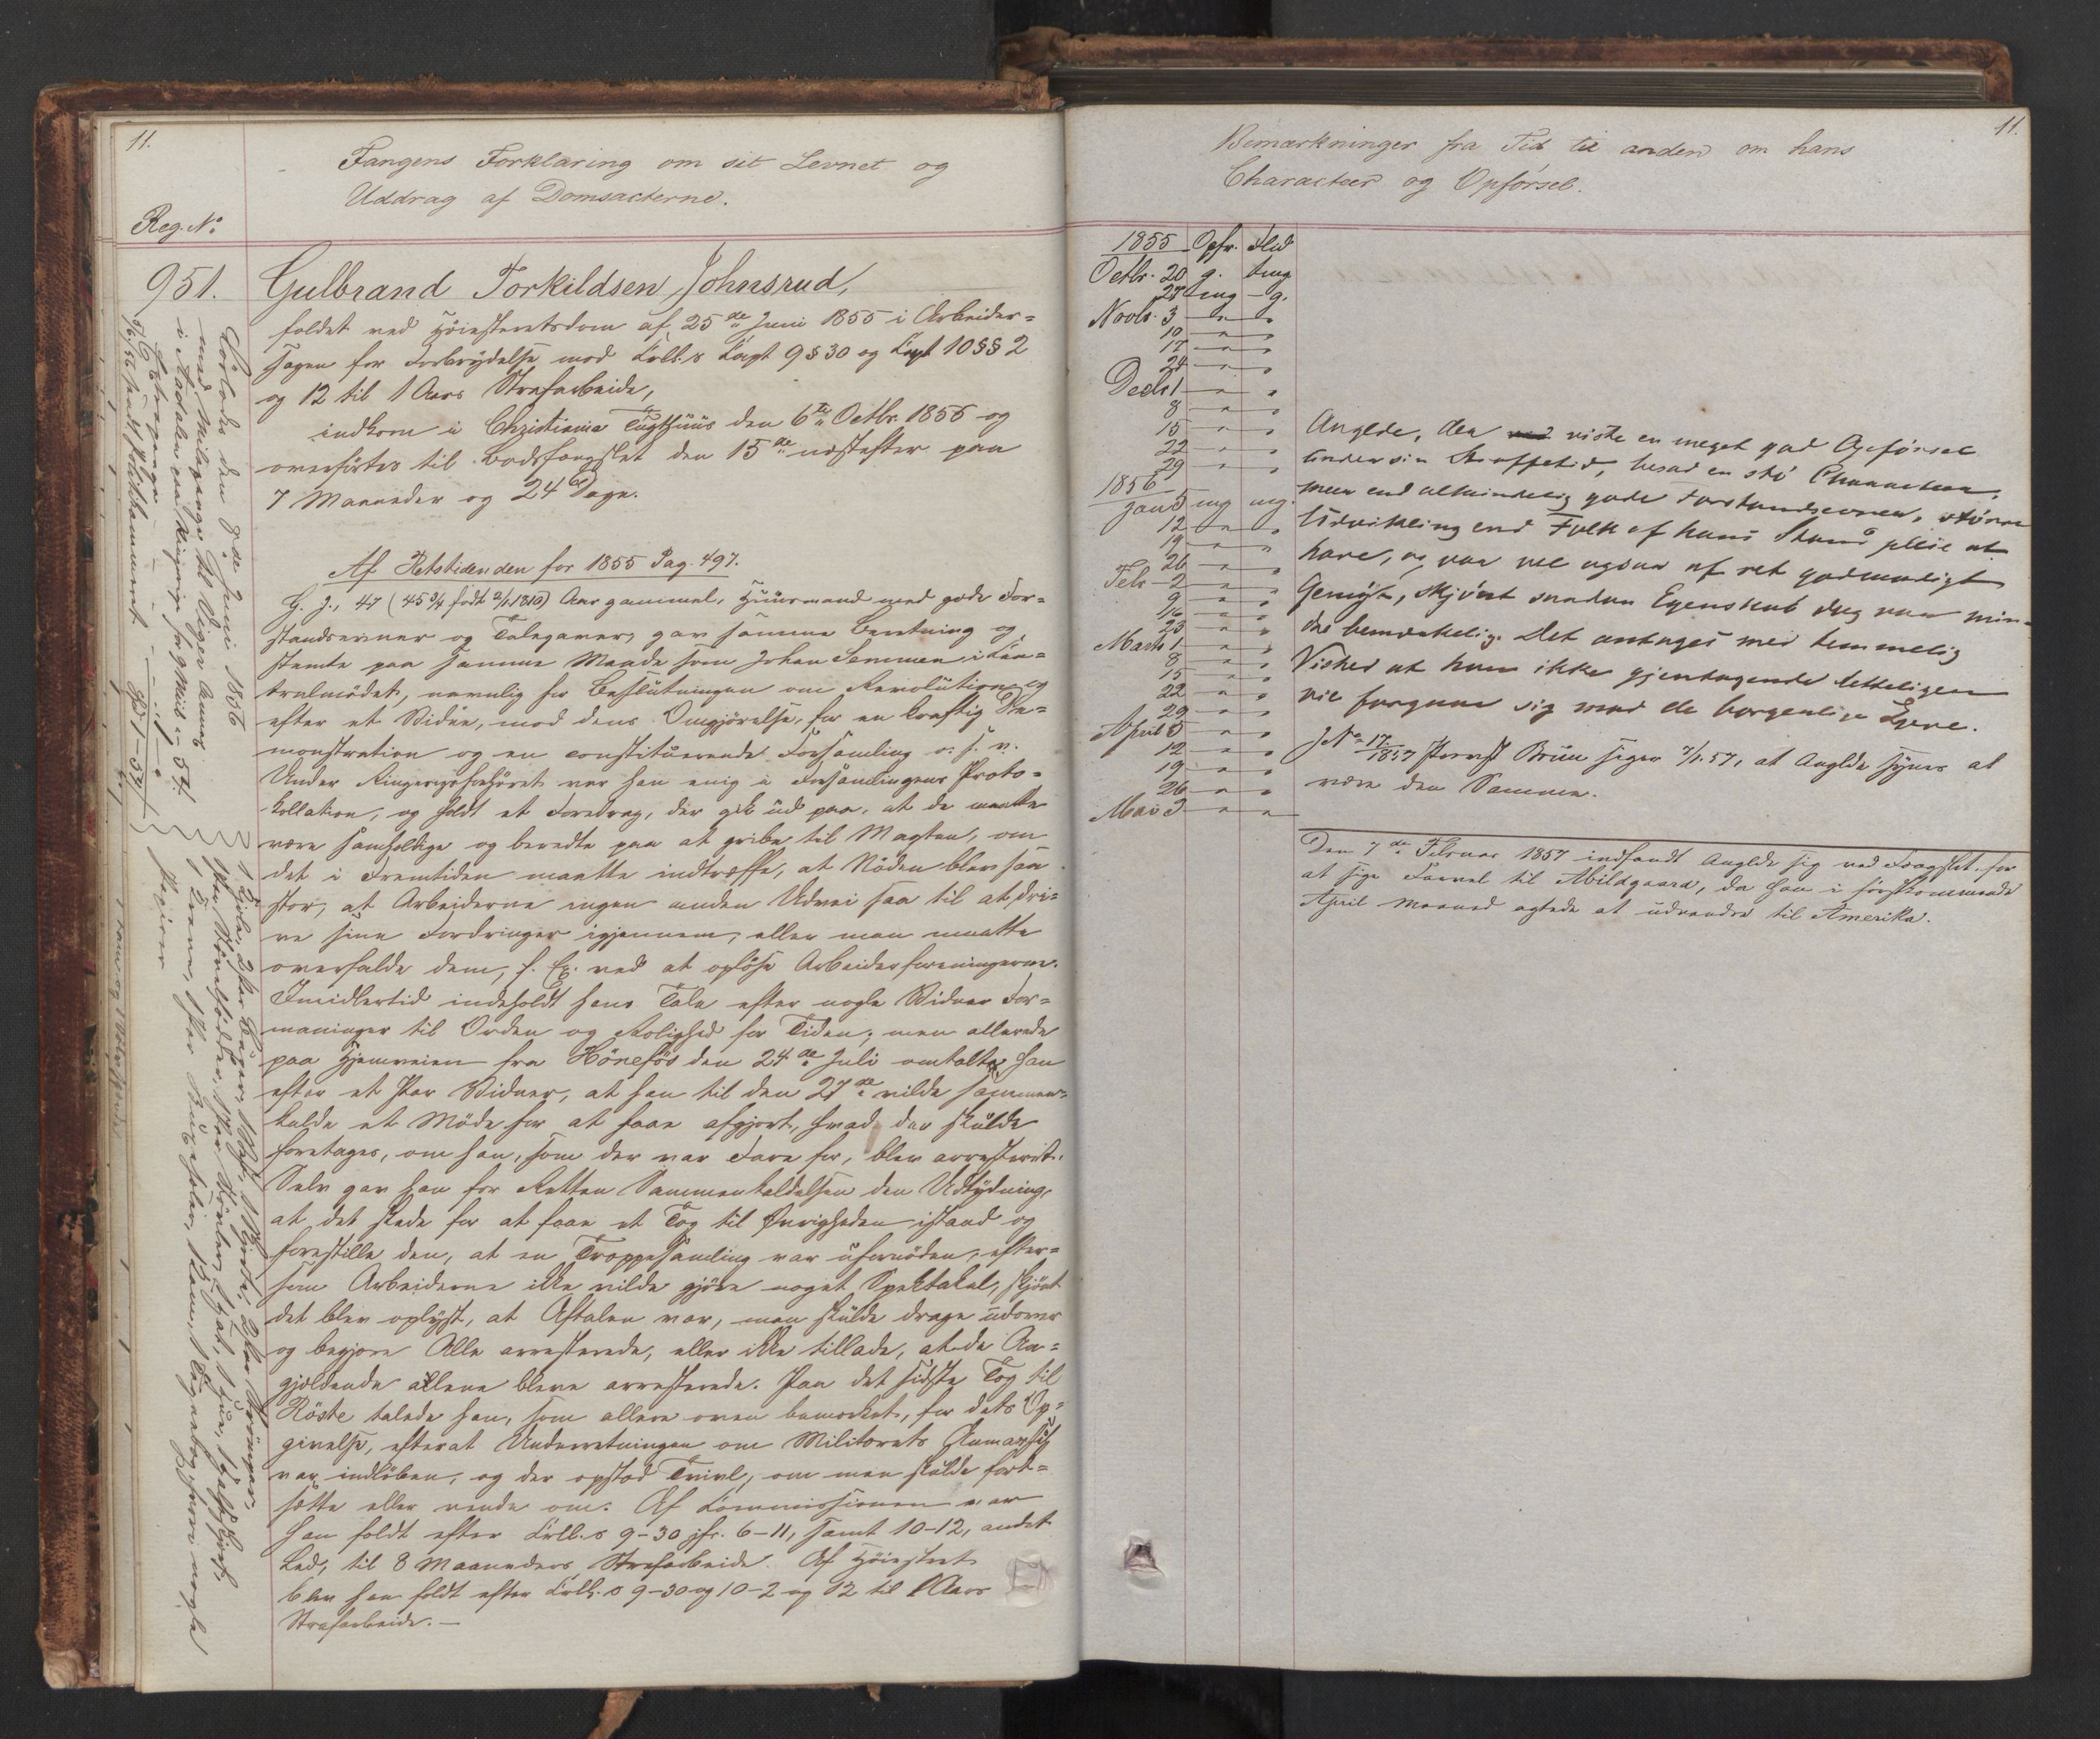 11.
Fangens Forklaring om sit Levnet og
Uddrag af Domsacterne.
Reg. No
951.
Gulbrand Torkildsen Johnsrud,
fældet ved Høiesteretsdom af 25de Juni 1855 i Arbeider-
sagen for Forbrydelse mod Crll.s Capt 9 § 30 og Capt 10 §§ 2
og 12 til 1 Aars Strafarbeide,
indkom i Christiania Tugthuus den 6te Octbr. 1855 og
overførtes til Bodsfængslet den 15de næstefter paa
7 Maaneder og 24 Dage.
Af Retstidenden for 1855 Pag. 497.
G. J., 47 (45 3/4 født 2/1 1810) Aar gammel, Huusmand med gode For-
standsevner og Talegaver, gav samme Beretning og
stemte paa samme Maade som Johan Semmen i Cen-
tralmødet, nemlig for Beslutningen om Revolution og
efter et Vidne, mod dens Omgjørelse, for en kraftig De-
monstration og en constituerende Forsamling o. s. v.
Under Ringerigsforhøret var han enig i Forsamlingens Proto-
kollation, og holdt et Foredrag, der gik ud paa, at de maatte
være samholdige og beredte paa at gribe til Magten, om
det i Fremtiden maatte indtræffe, at Nøden blev saa
stor, at Arbeiderne ingen anden Udvei saa til at dri-
ve sine Fordringer igjennem, eller man maatte
overfalde dem, f. Ex. ved at opløse Arbeiderforeningerne.
Imidlertid indeholdt hans Tale efter nogle Vidner For-
maninger til Orden og Rolighed for Tiden; men allerede
paa Hjemveien fra Hönefös den 24de Juli omtalte han
efter et Par Vidner, at han til den 27de vilde sammen-
kalde et Møde for at faae afgjort, hvad der skulde
foretages, om han, som der var Fare for, blev arresteret.
Selv gav han for Retten Sammenkaldelsen den Udtydning,
at det skede for at faae et Tog til Øvrigheden istand og
forestille den, at en Troppesamling var ufornøden, efter-
som Arbeiderne ikke vilde gjøre noget Spektakel, skjønt
det blev oplyst, at Aftalen var, man skulde drage udover
og begjære Alle arresterede, eller ikke tillade, at de An-
gjældende allene bleve arresterede. Paa det sidste Tog til
Köste talede han, som allerede oven bemærket, for dets Op-
givelse, efterat Underretningen om Militærets Anmarsch
var indløben, og der opstod Tvivl, om man skulde fort-
sætte eller vende om. Af Commissionen var
han fældt efter Crll.s 9-30 jfr. 6-11, samt 10-12, andet
Led, til 8 Maaneders Strafarbeide. Af Høiesteret
blev han fældt efter Crll.s 9-30 og 10-2 og 12 til 1 Aars
Strafarbeide. —
Løslodes den 9de Juni 1856
11.
Bemærkninger fra Tid til anden om hans
Characteer og Opførsel.
1855 Opfr. Flid
Octbr. 20 g. tmg
27 mg - g.
Novbr. 3 " "
10 " "
17 " "
24 " "
Decbr 1 " "
8 " "
15 " "
22 " "
29 " "
1856
Jan 5 mg mg.
12 " "
19 " "
26 " "
Feb - 2 " "
9 " "
16 " "
23 " "
Marts 1 " "
8 " "
15 " "
22 " "
29 " "
April 5 " "
12 " "
19 " "
26 " "
Mai 3 " "
Angldе, der viste en meget god Opførsel
under sin Straffetid, besad en Character,
meer end almindelig gode Forstandsevner, større
Udvikling end Folk af hans Stand pleie at
have, og var vel ogsaa af ret godmodigt
Gemyt, skjönt saadan Egenskab dog var min-
dre bemærkelig. Det antages med temmelig
Vished at han ikke gjentagende letteligen
vil forgaae sig mod de borgerlige Love.
JNo 17/1857 Brun siger 7/1. 57, at Anglde synes at
være den Samme.
Den 7de Februar 1857 indfandt Anglde sig ved Fængslet for
at sige Farvel til Abildgaard, da han i förstkommende
April Maaned agtede at udvandre til Amerika.